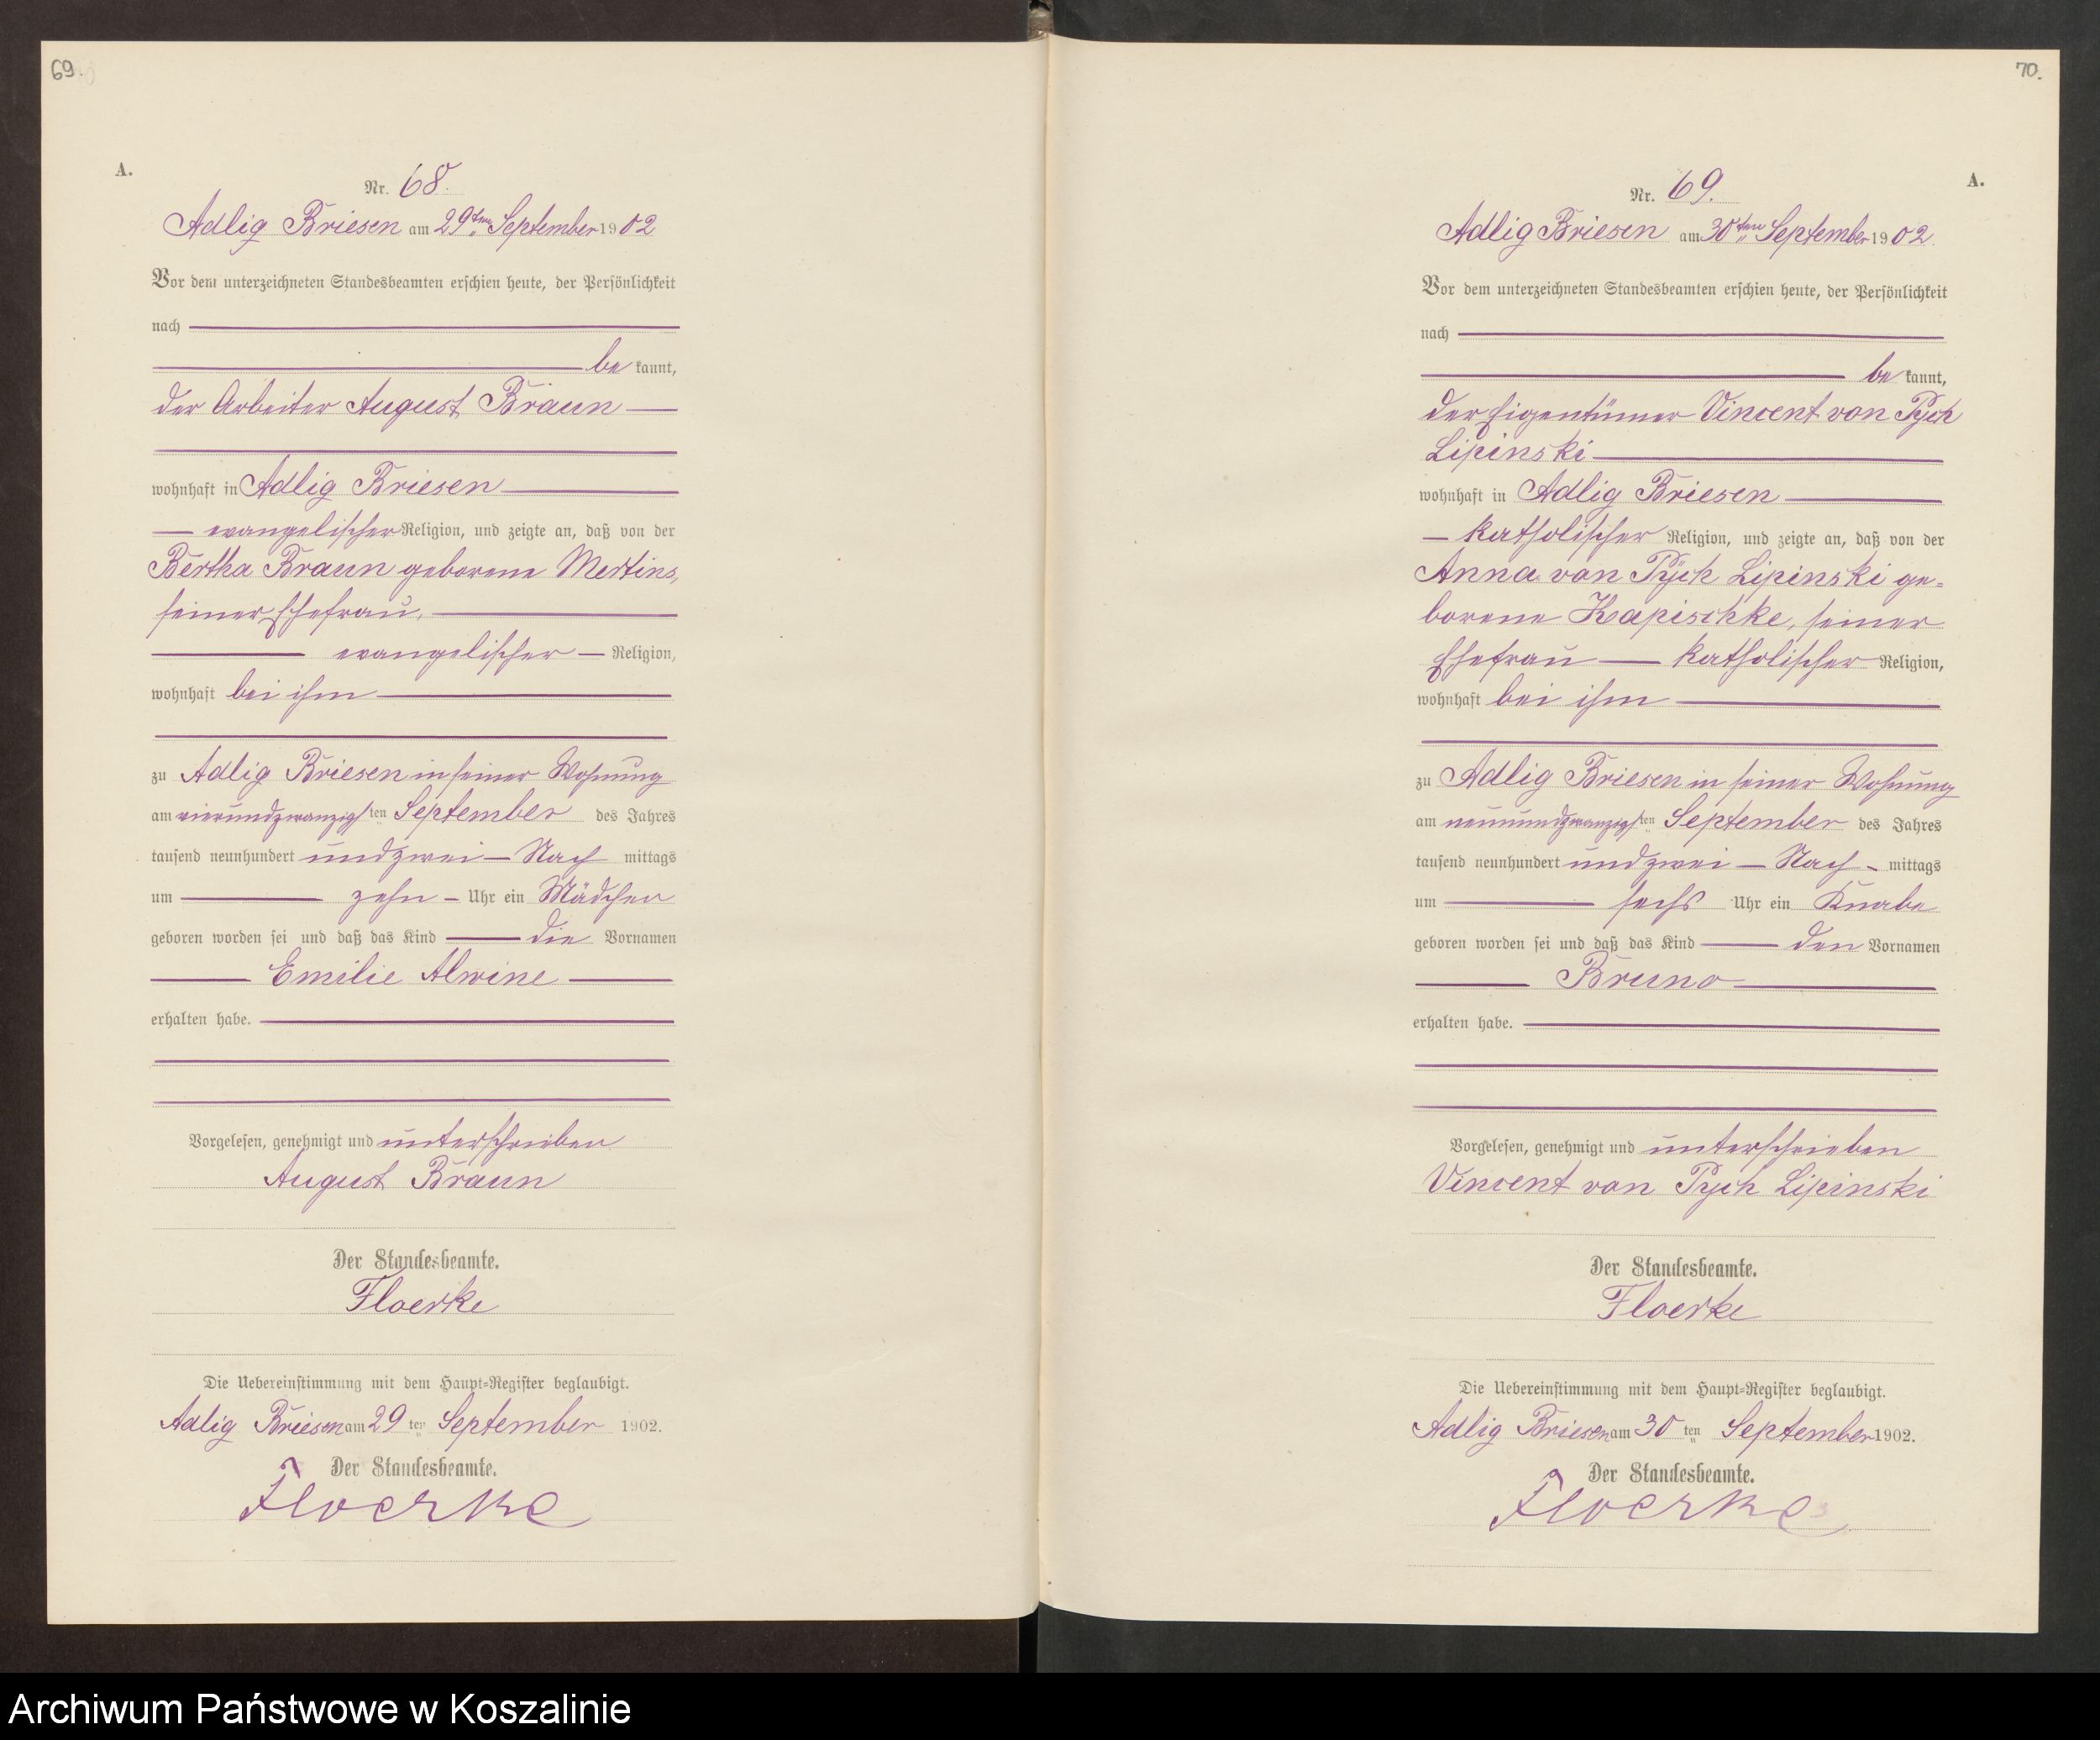 69.
A.
Nr. 68.
Adlig Briesen am 29ten September 1902
Vor dem unterzeichneten Standesbeamten erschien heute, der Persönlichkeit
nach
be kannt,
der Arbeiter August Braun
wohnhaft in Adlig Briesen
evangelischer Religion, und zeigte an, daß von der
Bertha Braun geborene Mertins,
seiner Ehefrau,
evangelischer Religion,
wohnhaft bei ihm
zu Adlig Briesen in seiner Wohnung
am vierundzwanzigsten September des Jahres
tausend neunhundert undzwei Nach mittags
um zehn Uhr ein Mädchen
geboren worden sei und daß das Kind die Vornamen
Emilie Alwine
erhalten habe.
Vorgelesen, genehmigt und unterschrieben
August Braun
Der Standesbeamte.
Floerke
Die Uebereinstimmung mit dem Haupt-Register beglaubigt.
Adlig Briesen am 29 ten September 1902.
Der Standesbeamte.
Floerke
70.
A.
Nr. 69.
Adlig Briesen am 30ten September 1902.
Vor dem unterzeichneten Standesbeamten erschien heute, der Persönlichkeit
nach
be kannt,
der Eigentümer Vincent von Pych
Lipinski
wohnhaft in Adlig Briesen
katholischer Religion, und zeigte an, daß von der
Anna von Pych Lipinski ge-
borene Kapischke, seiner
Ehefrau katholischer Religion,
wohnhaft bei ihm
zu Adlig Briesen in seiner Wohnung
am neunundzwanzigsten September des Jahres
tausend neunhundert undzwei Nach mittags
um sechs Uhr ein Knabe
geboren worden sei und daß das Kind den Vornamen
Bruno
erhalten habe.
Vorgelesen, genehmigt und unterschrieben
Vincent von Pych Lipinski
Der Standesbeamte.
Floerke
Die Uebereinstimmung mit dem Haupt-Register beglaubigt.
Adlig Briesen am 30 ten September 1902.
Der Standesbeamte.
Floerke
Archiwum Państwowe w Koszalinie